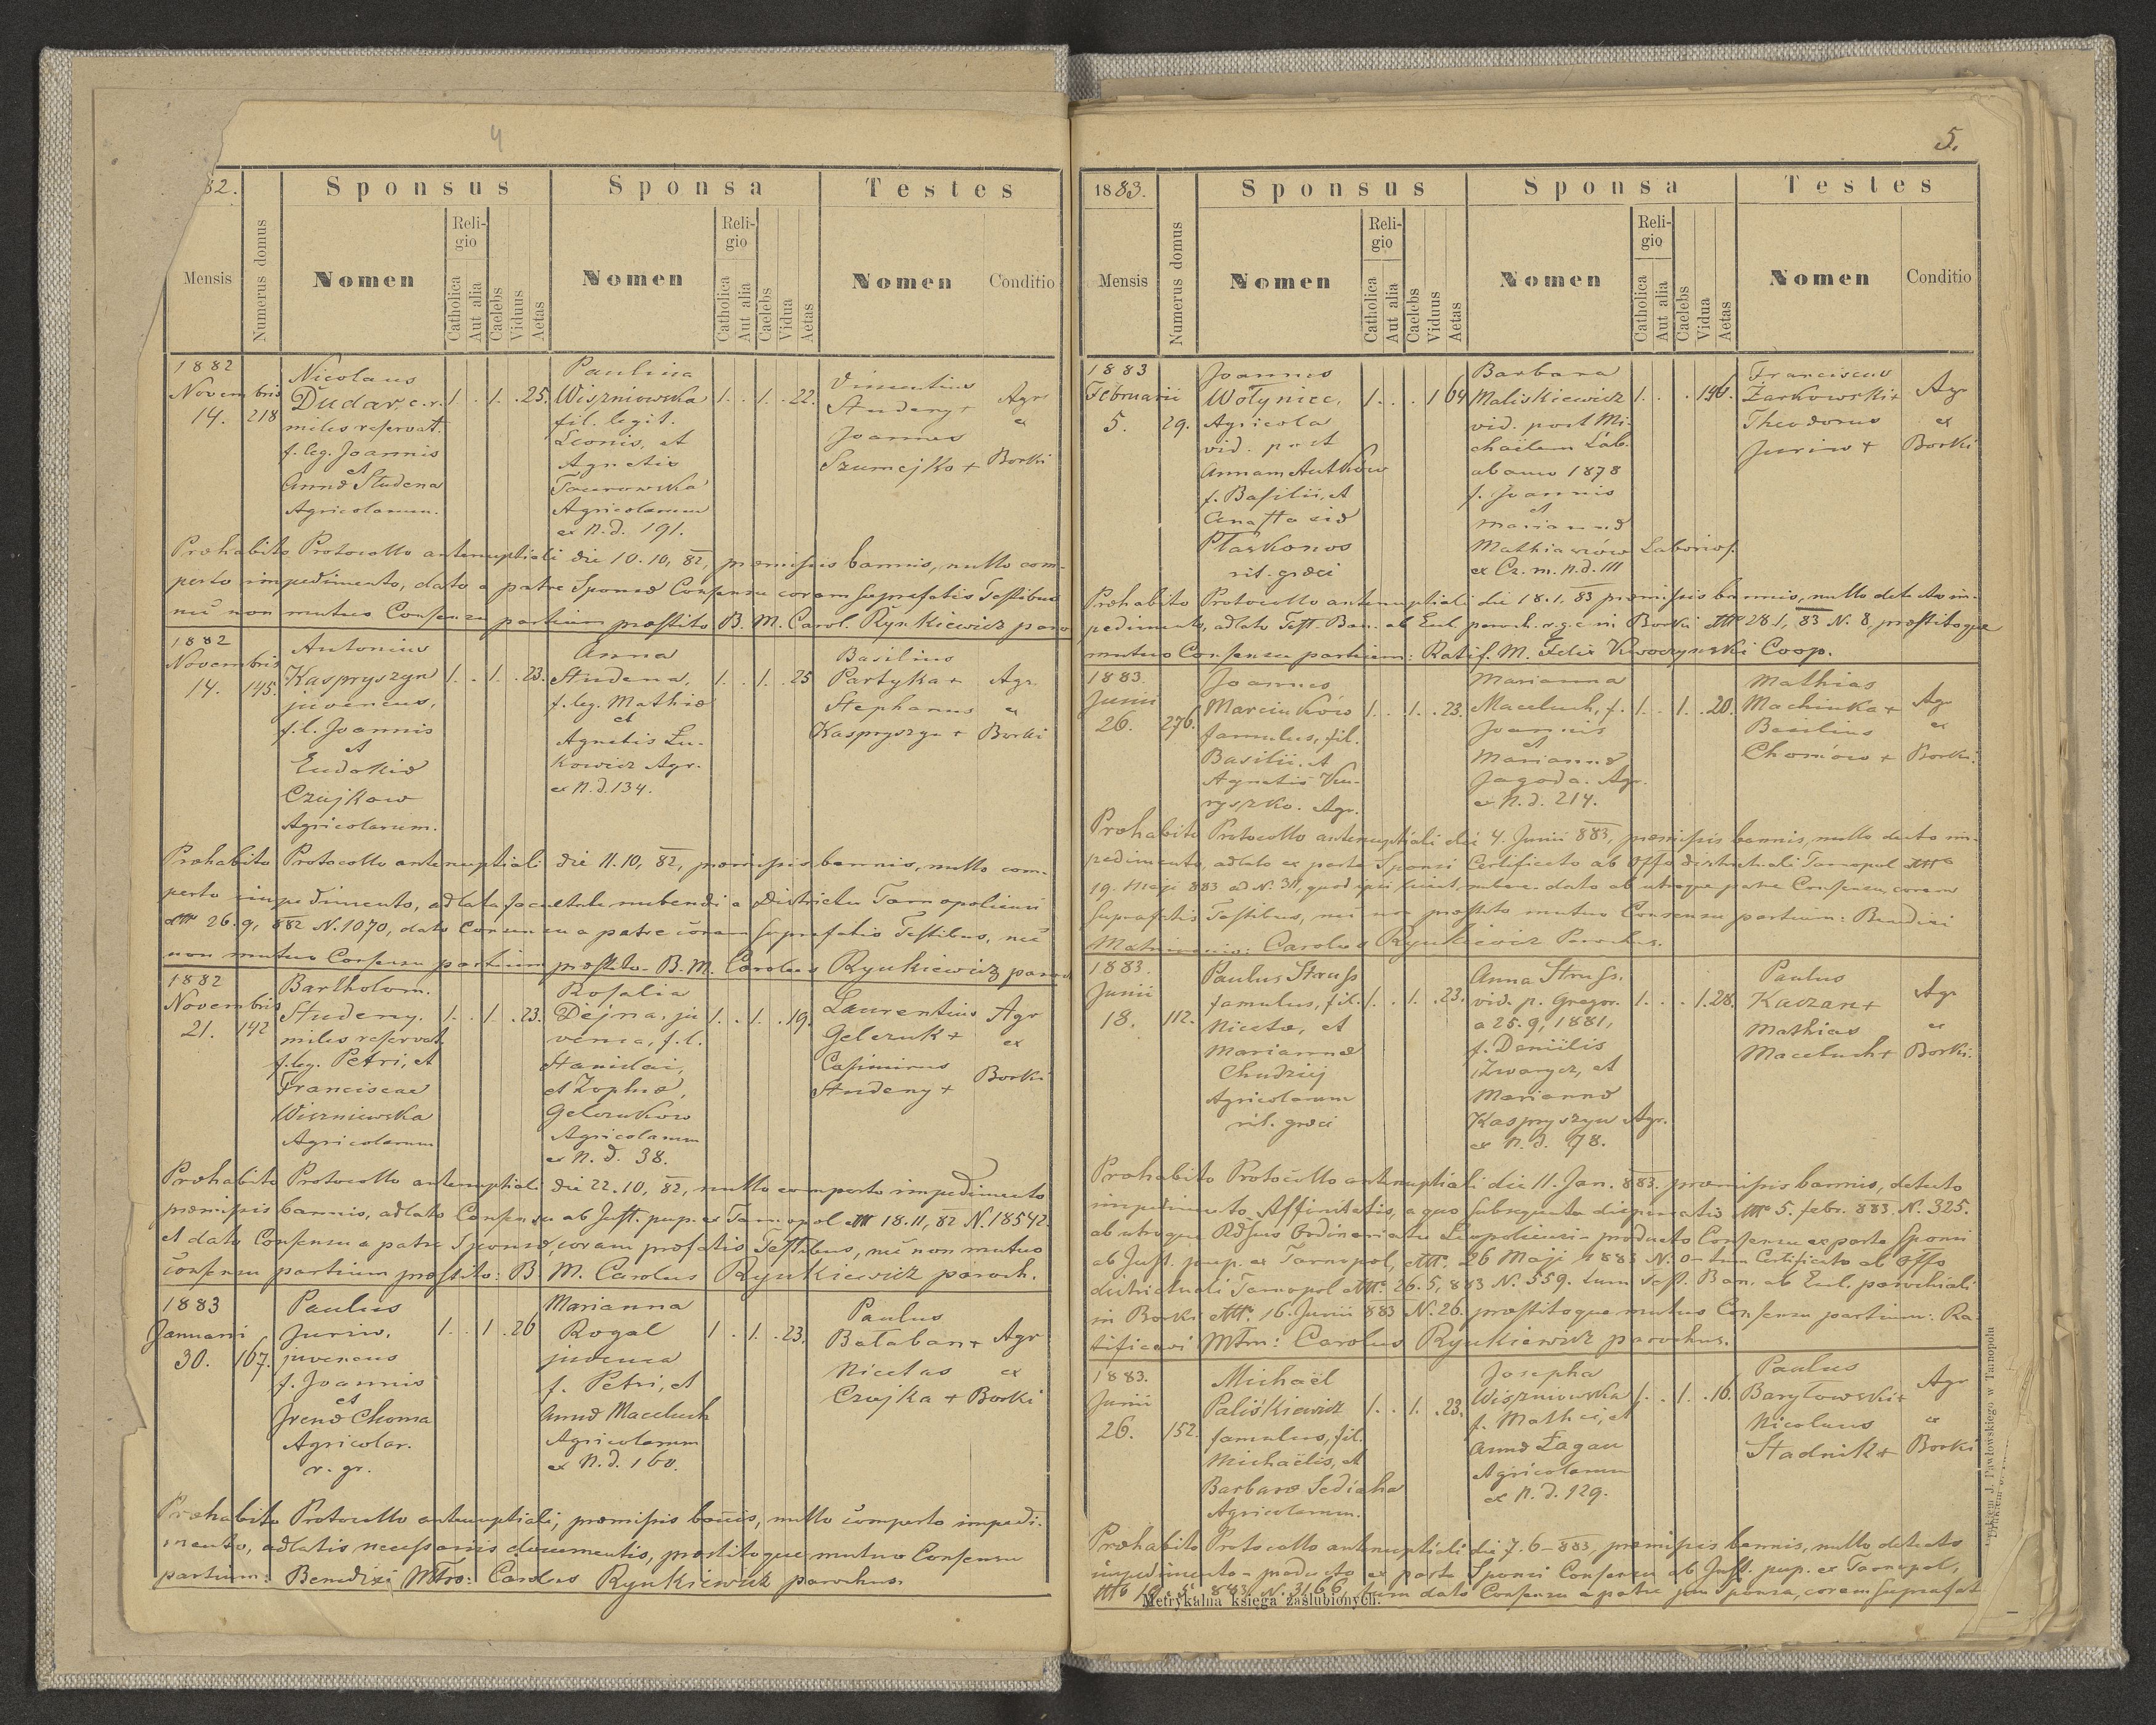 4
82.
Sponsus
Sponsa
Testes
Mensis
Numerus domus
Nomen
Religio
Catholica
Aut alia
Caelebs
Viduus
Aetas
Nomen
Religio
Catholica
Aut alia
Caelebs
Vidua
Aetas
Nomen
Conditio
1882
Novembris
14.
218
Nicolaus
Dudar, c. r.
miles reservat.
f. leg. Joannis
et
Annæ Studena
Agricolarum.
1. . 1. . 25.
Paulina
Wiszniowska
fil. legit.
Leonis, et
Agnetis
Agricolarum
ex N. d. 191.
1. . 1. . 22.
Vincentius
Studeny +
Joannes
Szumejko +
Agr
ex
Borki
Præhabito Protocollo antenuptiali die 10.10, 82, præmissis bannis, nullo com-
perto impedimento, dato a patre Sponsæ Consensu coram suprafatis Testibus
nec non mutuo Consensu partium præstito B. M. Carol. Rynkiewicz paro
1882
Novembris
14.
145.
Antonius
Kaspryszyn
juvencus,
f. l. Joannis
et
Eudokiæ
Czajkow
Agricolarum.
1. . 1. . 23.
Anna
Studena,
f. leg. Mathiæ
et
Agnetis Lu-
kowicz Agr.
ex N. d. 134.
1. . 1. . 25
Basilius
Partyka +
Stephanus
Kaspryszyn +
Agr.
ex
Borki
Præhabito Protocollo antenuptiali die 11.10, 82, præmissis bannis, nullo com-
perto impedimento, adlata facultate nubendi a Districtu Tarnopoliensi
26.9, 882 N. 1070, dato Consensu a patre coram suprafatis Testibus, nec
non mutuo Consensu partium præstito - B. M. Carolus Rynkiewicz paroc
1882
Novembris
21.
142
Bartholom.
Studeny.
miles reservat.
f. leg. Petri, et
Franciscae
Wiszniewska
Agricolarum
1. . 1. . 23.
Rosalia
Dejna, ju
venca, f. l.
Stanislai,
et Zophiæ,
Gelczukow
Agricolarum
ex N. d. 38.
1. . 1. . 19.
Laurentius
Gelczuk +
Casimirus
Studeny +
Agr
ex
Borki
Præhabito Protocollo antenuptiali die 22.10, 82, nullo comperto impedimento
præmissis bannis, adlato Consensu ab Just. pup. ex Tarnopol 18.11, 82 N. 18542.
et dato Consensu a patre Sponsæ, coram præfatis Testibus, nec non mutuo
Consensu partium præstito: B M. Carolus Rynkiewicz paroch.
1883
Januarii
30.
167.
Paulus
Juriw,
juvencus
f. Joannis
et
Irenæ Choma
Agricolar.
r. gr.
1. . 1 . 26
Marianna
Rogal
juvenca
f. Petri, et
Annæ Maceluch
Agricolarum
ex N. d. 160.
1 . 1. . 23.
Paulus
Bałaban +
Nicetas
Czajka +
Agr
ex
Borki
Præhabito Protocollo antenuptiali, præmissis bannis, nullo comperto impedi-
mento, adlatis necessariis documentis, præstitoque mutuo Consensu
partium: Benedixi Mtro: Carolus Rynkiewicz parochus.
5.
1883.
Sponsus
Sponsa
Testes
Mensis
Numerus domus
Nomen
Religio
Catholica
Aut alia
Caelebs
Viduus
Aetas
Nomen
Religio
Catholica
Aut alia
Caelebs
Vidua
Aetas
Nomen
Conditio
1883
Februarii
5.
29.
Joannes
Wołyniec,
Agricola
vid. post
Annam Autków
f. Basilii, et
Anastasiæ
Płaskonos
rit. græci
1. . . 1 64
Barbara
Maliskiewicz
vid. post Mi-
chaëlem Lab.
ab anno 1878
f. Joannis
et
Mariannæ
Mathiaszów Laborios.
ex Cz. m. n. d. 111
1. . . 1 46.
Franciscus
Żarkowski +
Theodorus
Juriw +
Agr
ex
Borki
Præhabito Protocollo antenuptiali die 18.1, 83 præmissis bannis, nullo detecto im-
pedimento, adlato Test. Ban. ab Eccl. paroch. r. g. c. in Borki 28.1, 83 N. 8, præstitoque
mutuo Consensu partium: Ratif. M. Felix Kwoczynski Coop.
1883.
Junii
26.
276.
Joannes
Marcinków
famulus, fil.
Basilii, et
Agnetis Ku-
ryszko. Agr.
1. . 1. . 23.
Marianna
Maceluch, f.
Joannis
et
Mariannæ
Jagoda. Agr.
ex N. d. 214.
1. . 1. . 20.
Mathias
Machinka +
Basilius
Chomów +
Agr
ex
Borki.
Præhabito Protocollo antenuptiali die 4. Junii 883, præmissis bannis, nullo detecto im-
pedimento, adlato ex parte Sponsi Certificato ab Offo districtuali Tarnopol
19. Maji 883 ad N. 311, dato ab utroque patre Consensu, coram
suprafatis Testibus, nec non præstito mutuo Consensu partium: Benedixi
Matrimonio: Carolus Rynkiewicz Parochus.
1883.
Junii
18.
112.
Paulus Struss
famulus, fil.
Nicetæ, et
Mariannæ
Chudziej
Agricolarum
rit. græci
1. . 1. . 23.
Anna Struss.
vid. p. Gregor.
a 25.9, 1881,
f. Daniilis
Zwarycz, et
Mariannæ
Kaspryszyn Agr.
ex N. d. 78.
1. . . 1. 28.
Paulus
Kaczan +
Mathias
Maceluch +
Agr
ex
Borki.
Præhabito Protocollo antenuptiali die 11. Jan. 883. præmissis bannis, detecto
impedimento Affinitatis, a quo subsequuta dispensatio 5. febr. 883. N. 325.
ab utroque Ordinariatu Leopoliensi - producto Consensu ex parte Sponsi
ab Just. pup. ex Tarnopol, 26 Maji 1883 N. 0 - tum Certificato ab Offo
districtuali Tarnopol 26.5, 883 N. 559. tum Test. Ban. ab Eccl. parochiali
in Borki 16. Junii 883 N. 26. præstitoque mutuo Consensu partium: Ra-
tificavi Mtm: Carolus Rynkiewicz parochus.
1883.
Junii
26.
152.
Michaël
Paliśkiewicz
famulus, fil.
Michaëlis, et
Barbaræ Sediaha
Agricolarum.
1. . 1. . 23.
Josepha
Wiszniowska
f. Mathei, et
Annæ Łagan
Agricolarum
ex N. d. 129.
1. . 1. . 16.
Paulus
Baryłowski +
Nicolaus
Stadnik +
Agr
ex
Borki
Præhabito Protocollo antenuptiali die 7.6 - 883, præmissis bannis, nullo detecto
impedimento - producto ex parte Sponsi Consensu ab Just. pup. ex Tarnopol,
N. 3166, tum dato Consensu a patre Sponsæ, coram suprafat
Metrykalna księga zaślubionych.
Drukiem J. Pawłowskiego w Tarnopolu